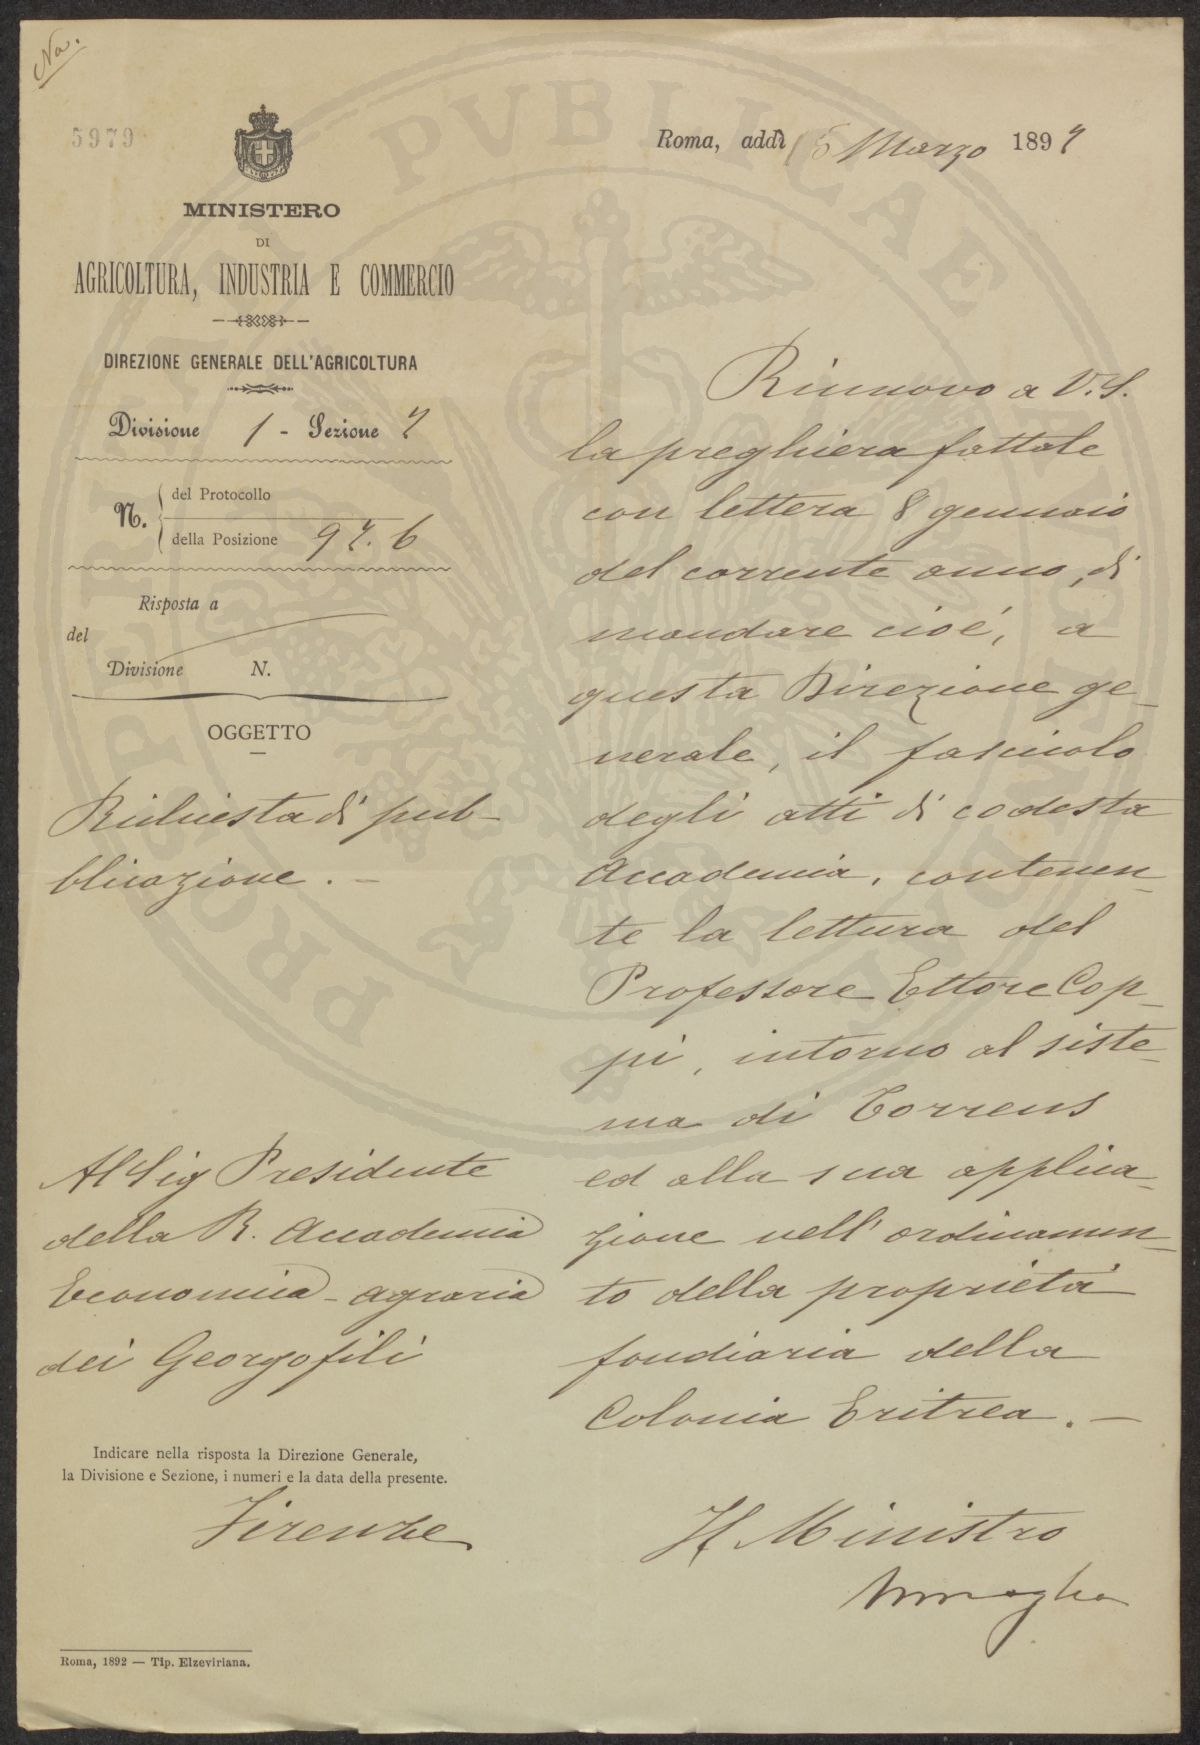 Na.
5979
MINISTERO
DI
AGRICOLTURA, INDUSTRIA E COMMERCIO
DIREZIONE GENERALE DELL'AGRICOLTURA
Divisione 1 - Sezione 2
N. del Protocollo
della Posizione 92.6
Risposta a
del
Divisione N.
OGGETTO
Richiesta di pub-
blicazione. -
Al Sig Presidente
della R. Accademia
Economica - agraria
dei Georgofili
Indicare nella risposta la Direzione Generale,
la Divisione e Sezione, i numeri e la data della presente.
Firenze
Roma, 1892 — Tip. Elzeviriana.
Roma, addì 15 Marzo 189
Rinnovo a V. S.
la preghiera fattale
con lettera 8 gennaio
del corrente anno, di
mandare cioé, a
questa Direzione ge-
nerale, il fascicolo
degli atti di codesta
Accademia, contenen-
te la lettura del
Professore Ettore Cop-
pi, intorno al siste-
ma di Torrens
ed alla sua applica-
zione nell'ordinamen-
to della proprietà
fondiaria della
Colonia Eritrea. -
Il Ministro
PROSPERITATI PVBLICAE AVGENDAE